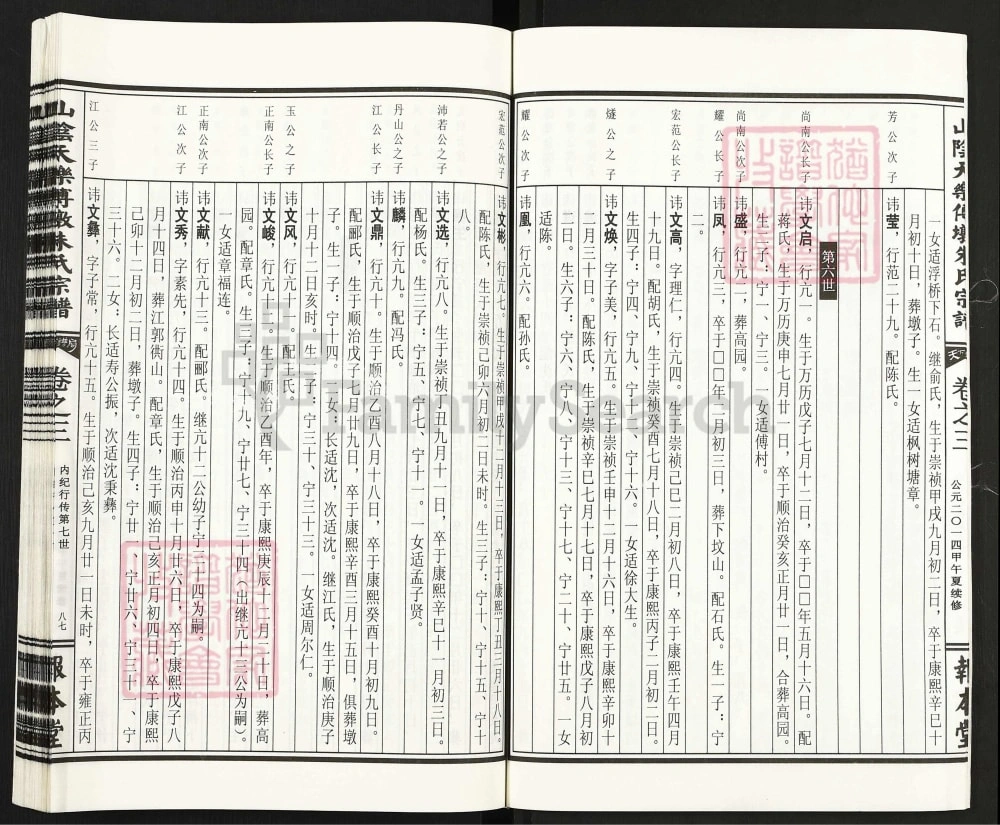 山阴天乐傅墩朱氏宗谱
卷之三
公元二〇一四甲午夏续修
報本堂
一女适浮桥下石。继俞氏，生于崇祯甲戌九月初二日，卒于康熙辛巳十
月初十日，葬墩子。生一女适枫树塘章。
芳公次子
讳莹，行范二十九。配陈氏。
第六世
尚南公长子
讳文启，行亢一。生于万历戊子七月十二日，卒于□□年五月十六日。配
蒋氏，生于万历庚申七月廿一日，卒于顺治癸亥正月廿一日，合葬高园。
生二子：宁一、宁三。一女适傅村。
尚南公次子
讳盛，行亢二，葬高园。
耀公长子
讳凤，行亢三，卒于□□年二月初三日，葬下坟山。配石氏。生一子：宁
二。
宏范公长子
讳文高，字理仁，行亢四。生于崇祯己巳二月初八日，卒于康熙壬午四月
十九日。配胡氏，生于崇祯癸酉七月十八日，卒于康熙丙子二月初二日。
生四子：宁四、宁九、宁十、宁十六。一女适徐大生。
燧公之子
讳文焕，字子美，行亢五。生于崇祯壬申十二月十六日，卒于康熙辛卯十
二月三十日。配陈氏，生于崇祯辛巳七月十七日，卒于康熙戊子八月初
二日。生六子：宁六、宁八、宁十三、宁十七、宁二十、宁廿五。一女
适陈。
耀公次子
讳凰，行亢六。配孙氏。
宏范公次子
讳文彬，行亢七。生于崇祯甲戌十二月十三日，卒于康熙丁丑二月十八日。
配陈氏，生于崇祯己卯六月初二日未时。生三子：宁十、宁十五、宁十
八。
沛若公之子
讳文选，行亢八。生于崇祯丁丑九月十一日，卒于康熙辛巳十一月初三日。
配杨氏。生三子：宁五、宁七、宁十一。一女适孟子贤。
丹山公之子
讳麟，行亢九。配冯氏。
江公长子
讳文鼎，行亢十。生于顺治乙酉八月十八日，卒于康熙癸酉十月初九日。
配郦氏，生于顺治戊子七月廿九日，卒于康熙辛酉三月十五日，俱葬墩
子。生一子：宁十四。二女，长适沈，次适沈。继江氏，生于顺治庚子
十月十二日亥时。生二子：宁三十、宁三十三。一女适周尔仁。
玉公之子
讳文风，行亢十一。配王氏。
正南公长子
讳文峻，行亢十二。生于顺治乙酉年，卒于康熙庚辰十二月二十日，葬高
园。配章氏。生三子：宁十九、宁廿七、宁三十四（出继亢十三公为嗣）。
一女适章福连。
正南公次子
讳文献，行亢十三。配郦氏。继亢十二公幼子宁三十四为嗣。
江公次子
讳文秀，字素先，行亢十四。生于顺治丙申十月廿六日，卒于康熙戊子八
月十四日，葬江郭衖山。配章氏，生于顺治己亥正月初四日，卒于康熙
己卯十二月初二日，葬墩子。生四子：宁廿一、宁廿六、宁三十一、宁
三十六。二女：长适寿公振，次适沈秉彝。
江公三子
讳文彝，字子常，行亢十五。生于顺治己亥九月廿一日未时，卒于雍正丙
卷之三
内纪行传第七世
八七
報本堂
FamilySearch